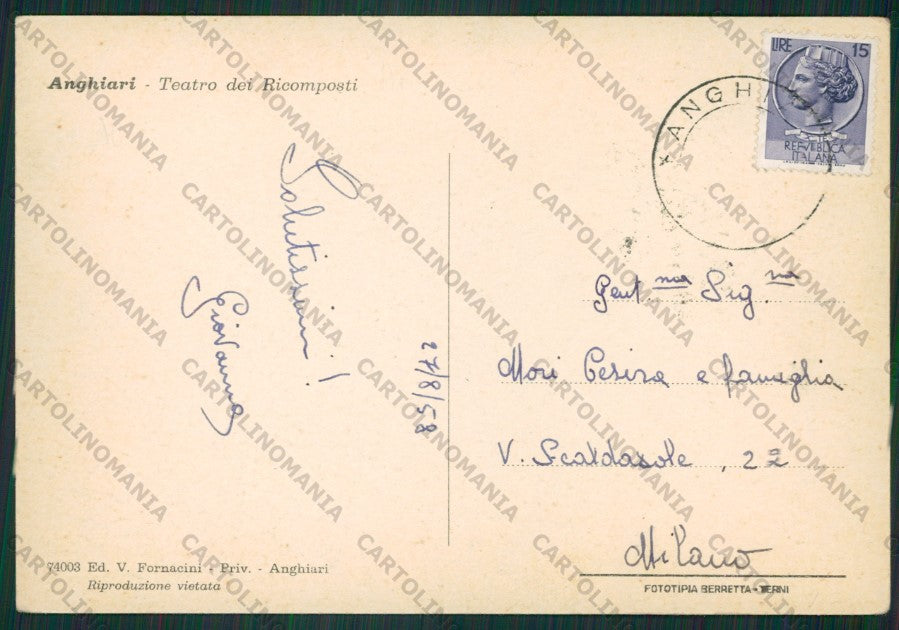 Anghiari - Teatro dei Ricomposti
Salutissimi!
Giovanna
27/8/58
74003 Ed. V. Fornacini - Priv. - Anghiari
Riproduzione vietata
LIRE 15
REPVBBLICA
ITALIANA
ANGHI
Gent.ma Sig.na
Mori Cesira e famiglia
V. Scaldasole, 22
Milano
FOTOTIPIA BERRETTA - TERNI
CARTOLINOMANIA